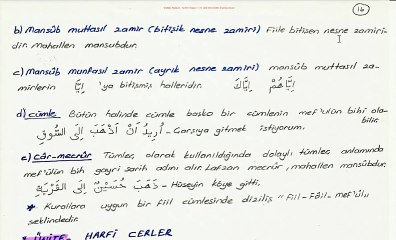 16
b) Mansûb muttasıl zamir (bitişik nesne zamiri) Fiile bitişen nesne zamiri-
dir. Mahallen mansubdur.
c) Mansûb munfasıl zamir (ayrık nesne zamiri) mansûb muttasıl za-
mirlerin إِيَّا 'ya bitişmiş halleridir. إِيَّاكَ إِيَّاهُمْ
d) cümle Bütün halinde cümle başka bir cümlenin mef'ûlün bihi ola-
bilir.
أُرِيدُ اَنْ اَذْهَبَ إِلَى السُّوقِ - Çarşıya gitmek istiyorum.
e) câr-mecrûr Tümleç olarak kullanıldığında dolaylı tümleç anlamında
mef'ûlün bih gayri sarih adını alır. Lafzan mecrûr, mahallen mansûbdur.
ذَهَبَ حُسَيْنٌ إِلَى الْقَرْيَةِ - Hüseyin köye gitti.
* Kurallara uygun bir fiil cümlesinde diziliş "Fiil - Fâil - mef'ûl"
şeklindedir.
ÜNİTE HARFİ CERLER